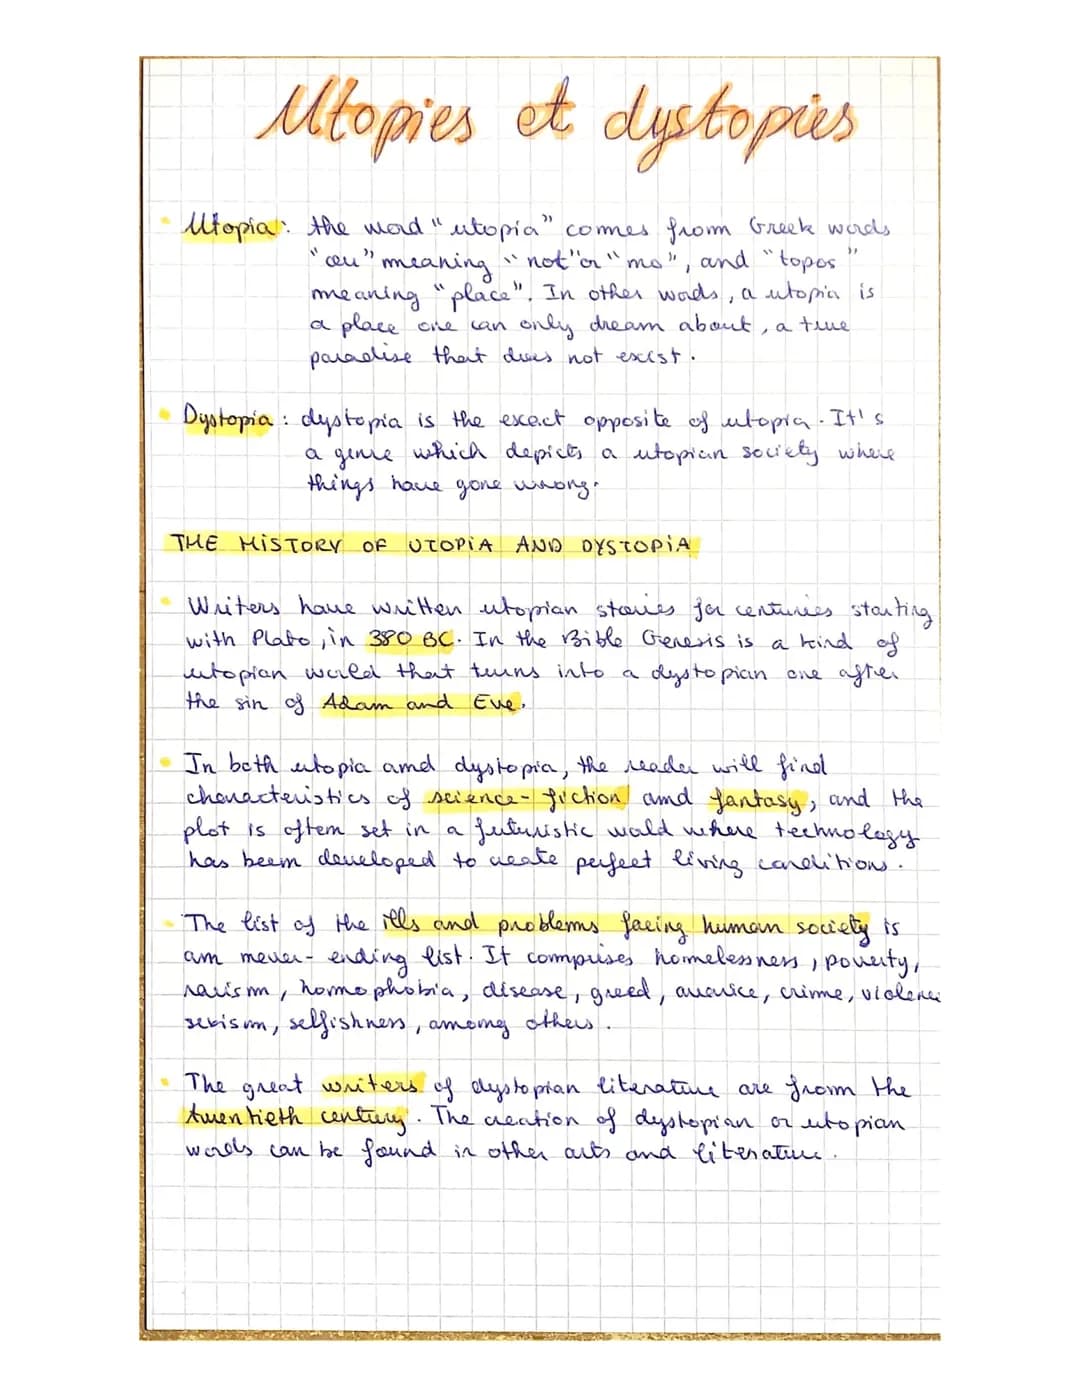 Utopies et dystopies
Utopia : the word "utopia" comes from Greek words
"ou" meaning "not" or "no", and "topos"
meaning "place". In other words, a utopia is
a place one can only dream about, a true
paradise that does not exist.
Dystopia : dystopia is the exact opposite of utopia. It's
a genre which depicts a utopian society where
things have gone wrong.
THE HISTORY OF UTOPIA AND DYSTOPIA
Writers have written utopian stories for centuries starting
with Plato, in 380 BC. In the Bible Genesis is a kind of
utopian world that turns into a dystopian one after
the sin of Adam and Eve.
In both utopia and dystopia, the reader will find
characteristics of science-fiction and fantasy, and the
plot is often set in a futuristic world where technology
has been developed to create perfect living conditions.
The list of the ills and problems facing human society is
an never-ending list. It comprises homelessness, poverty,
racism, homophobia, disease, greed, avarice, crime, violence
sexism, selfishness, among others.
The great writers of dystopian literature are from the
twentieth century. The creation of dystopian or utopian
worlds can be found in other arts and literature.